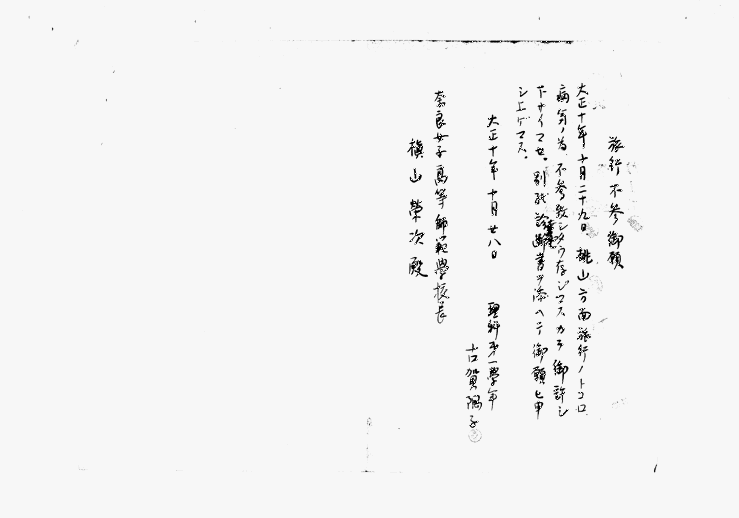 旅行不参御願
大正十年十月二十九日、桃山方面旅行ノトコロ
病気ノ為、不参致シタウ存ジマスカラ御許シ
下サイマセ。別紙診断書ヲ添ヘテ御願ヒ申
シ上ゲマス。
大正十年十月廿八日
理科第一學年
古賀隅子
奈良女子高等師範學校長
槇山榮次殿